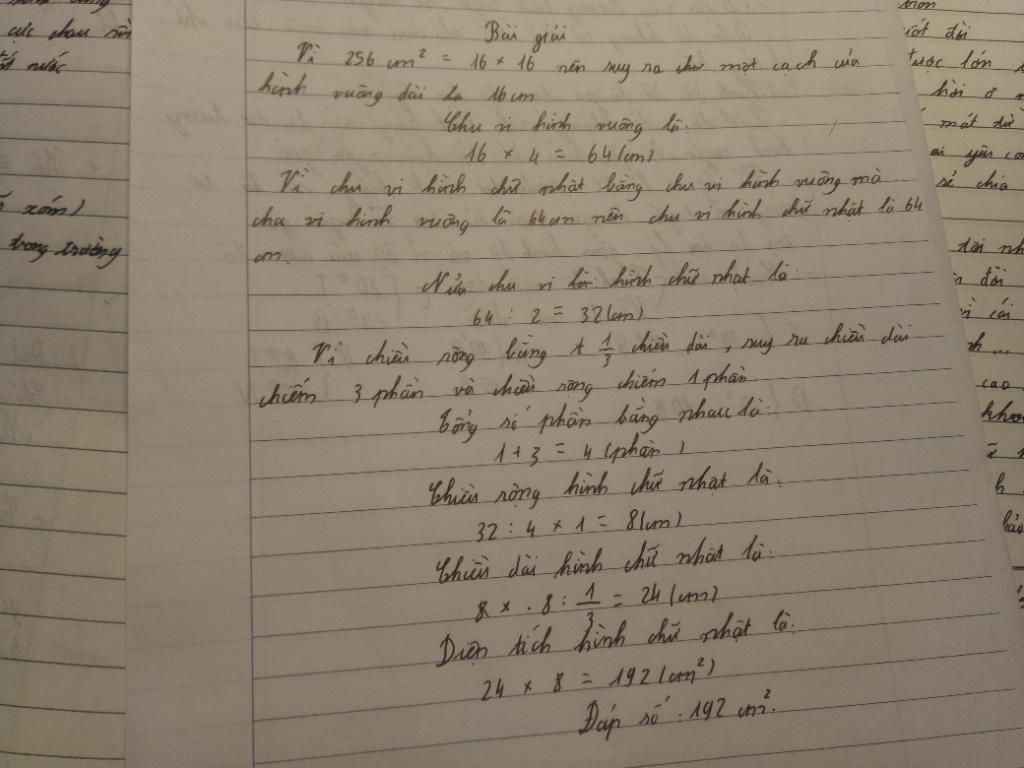 cức chau rồi
nước
xóm)
trong trường
Bài giải
Vì 256 cm² = 16 × 16 nên suy ra cho một cạch của
hình vuông dài là 16cm
Chu vi hình vuông là:
16 × 4 = 64(cm)
Vì chu vi hình chữ nhật bằng chu vi hình vuông mà
chu vi hình vuông là 64cm nên chu vi hình chữ nhật là 64
cm.
Nửa chu vi hình chữ nhật là:
64 : 2 = 32(cm)
Vì chiều rộng bằng 1/3 chiều dài, suy ra chiều dài
chiếm 3 phần và chiều rộng chiếm 1 phần.
Tổng số phần bằng nhau là:
1 + 3 = 4 (phần)
Chiều rộng hình chữ nhật là:
32 : 4 × 1 = 8(cm)
Chiều dài hình chữ nhật là:
8 : 1/3 = 24 (cm)
Diện tích hình chữ nhật là:
24 × 8 = 192(cm²)
Đáp số: 192 cm².
đời
lớn
hời ơ
mát từ
yêu con
sẻ chia
đời
cái
cao